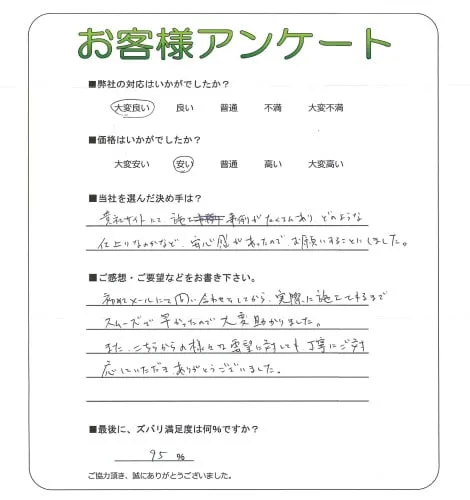 お客様アンケート
■弊社の対応はいかがでしたか？
大変良い 良い 普通 不満 大変不満
■価格はいかがでしたか？
大変安い 安い 普通 高い 大変高い
■当社を選んだ決め手は？
貴社サイトにて 施工事例がたくさんあり どのような
仕上りなのかなど、安心感があったので お願いすることにしました。
■ご感想・ご要望などをお書き下さい。
初めてメールにて問い合わせをしてから、実際に施工するまで
スムーズで早かったので大変助かりました。
また、こちらからの様々な要望に対しても丁寧にご対
応していただき ありがとうございました。
■最後に、ズバリ満足度は何%ですか？
95 %
ご協力頂き、誠にありがとうございました。